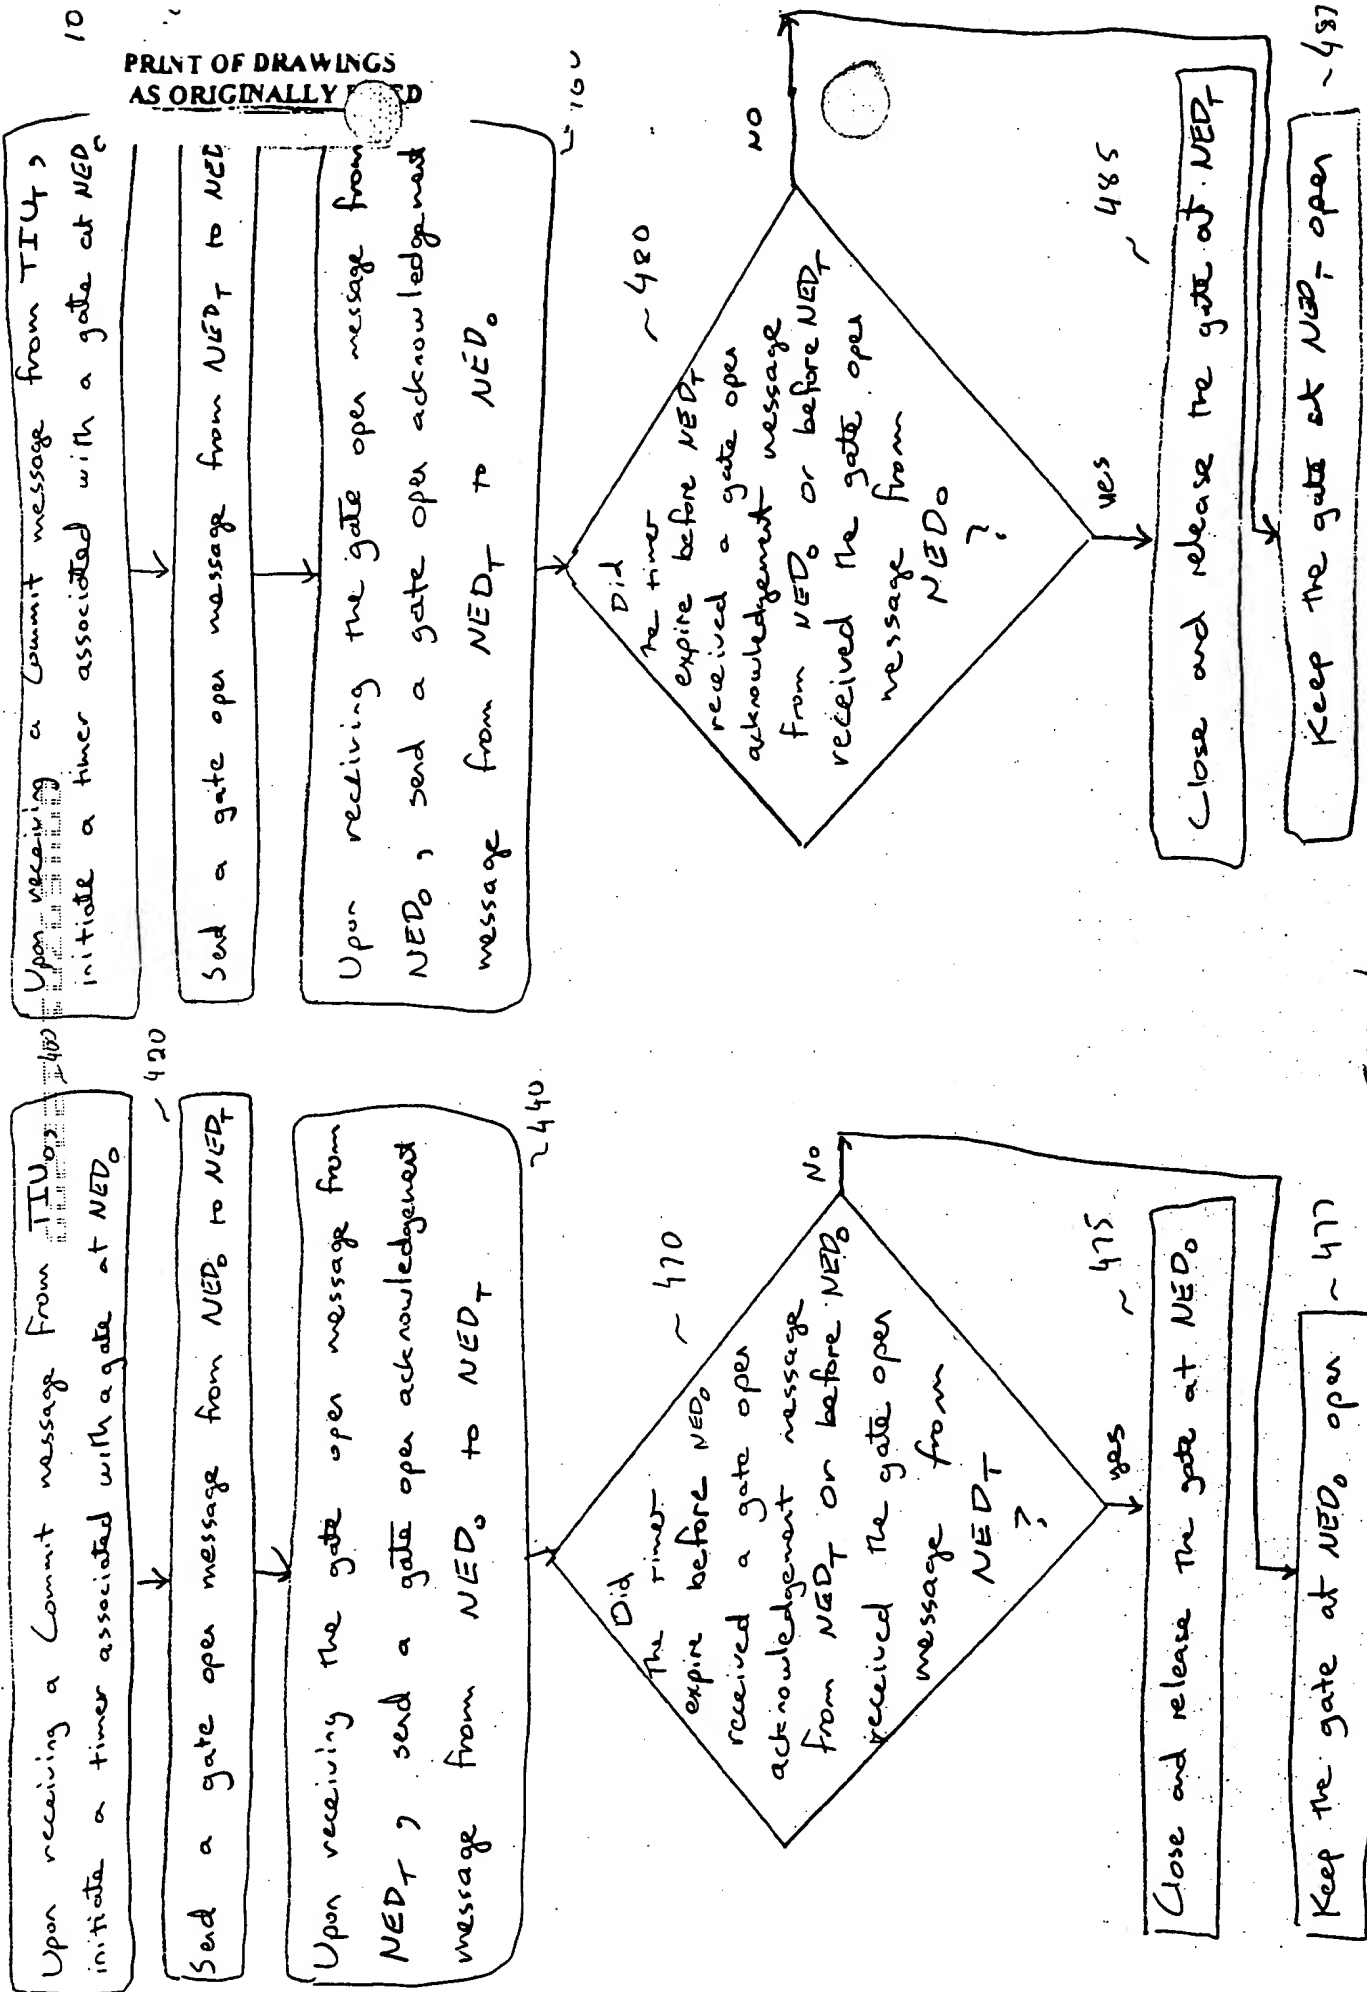 PRINT OF DRAWINGS
AS ORIGINALLY
Upon receiving a Commit message from TIU₀,
initiate a timer associated with a gate at NED₀
~400
Send a gate open message from NED₀ to NED_T
~420
Upon receiving the gate open message from
NED_T, send a gate open acknowledgement
message from NED₀ to NED_T
~440
Did
the timer
expire before NED₀
received a gate open
acknowledgement message
from NED_T or before NED₀
received the gate open
message from
NED_T
?
~470
NO
yes
Close and release the gate at NED₀
~475
Keep the gate at NED₀ open
~477
Upon receiving a Commit message from TIU_T,
initiate a timer associated with a gate at NED
10
Send a gate open message from NED_T to NED
Upon receiving the gate open message from
NED₀, send a gate open acknowledgement
message from NED_T to NED₀
Did
the timer
expire before NED_T
received a gate open
acknowledgement message
from NED₀ or before NED_T
received the gate open
message from
NED₀
?
~480
NO
yes
Close and release the gate at NED_T
~485
Keep the gate at NED_T open
~487